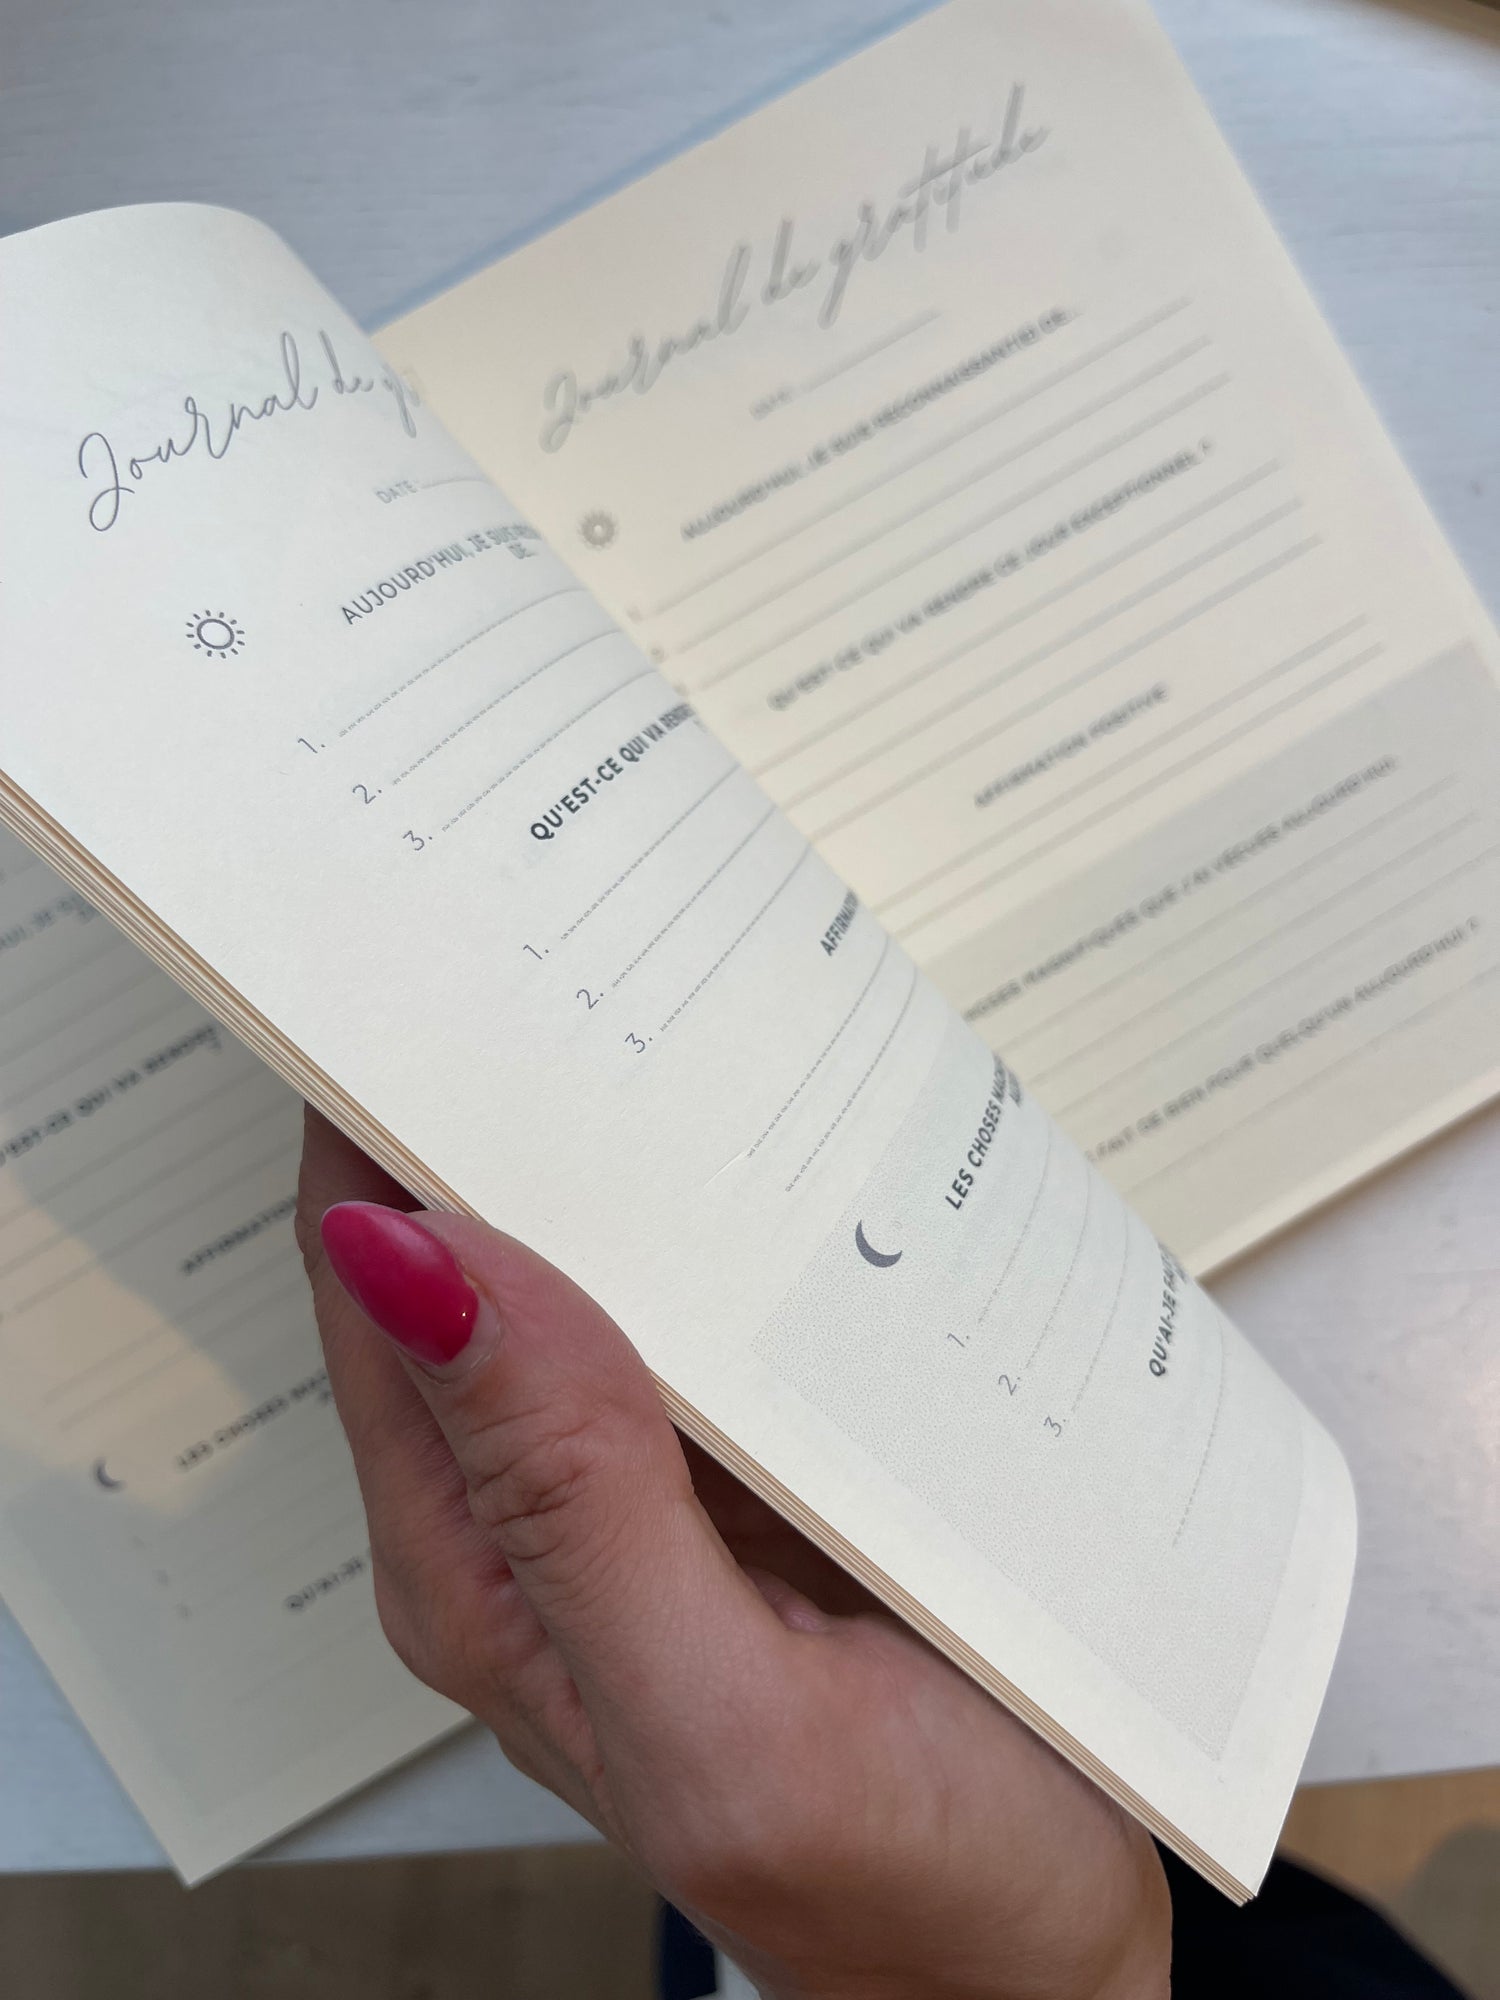 Journal de
DATE:
AUJOURD'HUI, JE SUIS
DE...
1.
2.
3.
QU'EST-CE QUI VA RENDRE
1.
2.
3.
AFFIRMATION
LES CHOSES
1.
2.
3.
QU'AI-JE FAIT
Journal de gratitude
DATE:
AUJOURD'HUI, JE SUIS RECONNAISSANT(E) DE...
QU'EST-CE QUI VA RENDRE CE JOUR EXCEPTIONNEL ?
AFFIRMATION POSITIVE
CHOSES MAGNIFIQUES QUE J'AI VÉCUES AUJOURD'HUI
FAIT DE BIEN POUR QUELQU'UN AUJOURD'HUI ?
QUI VA RENDRE
AFFIRMATION